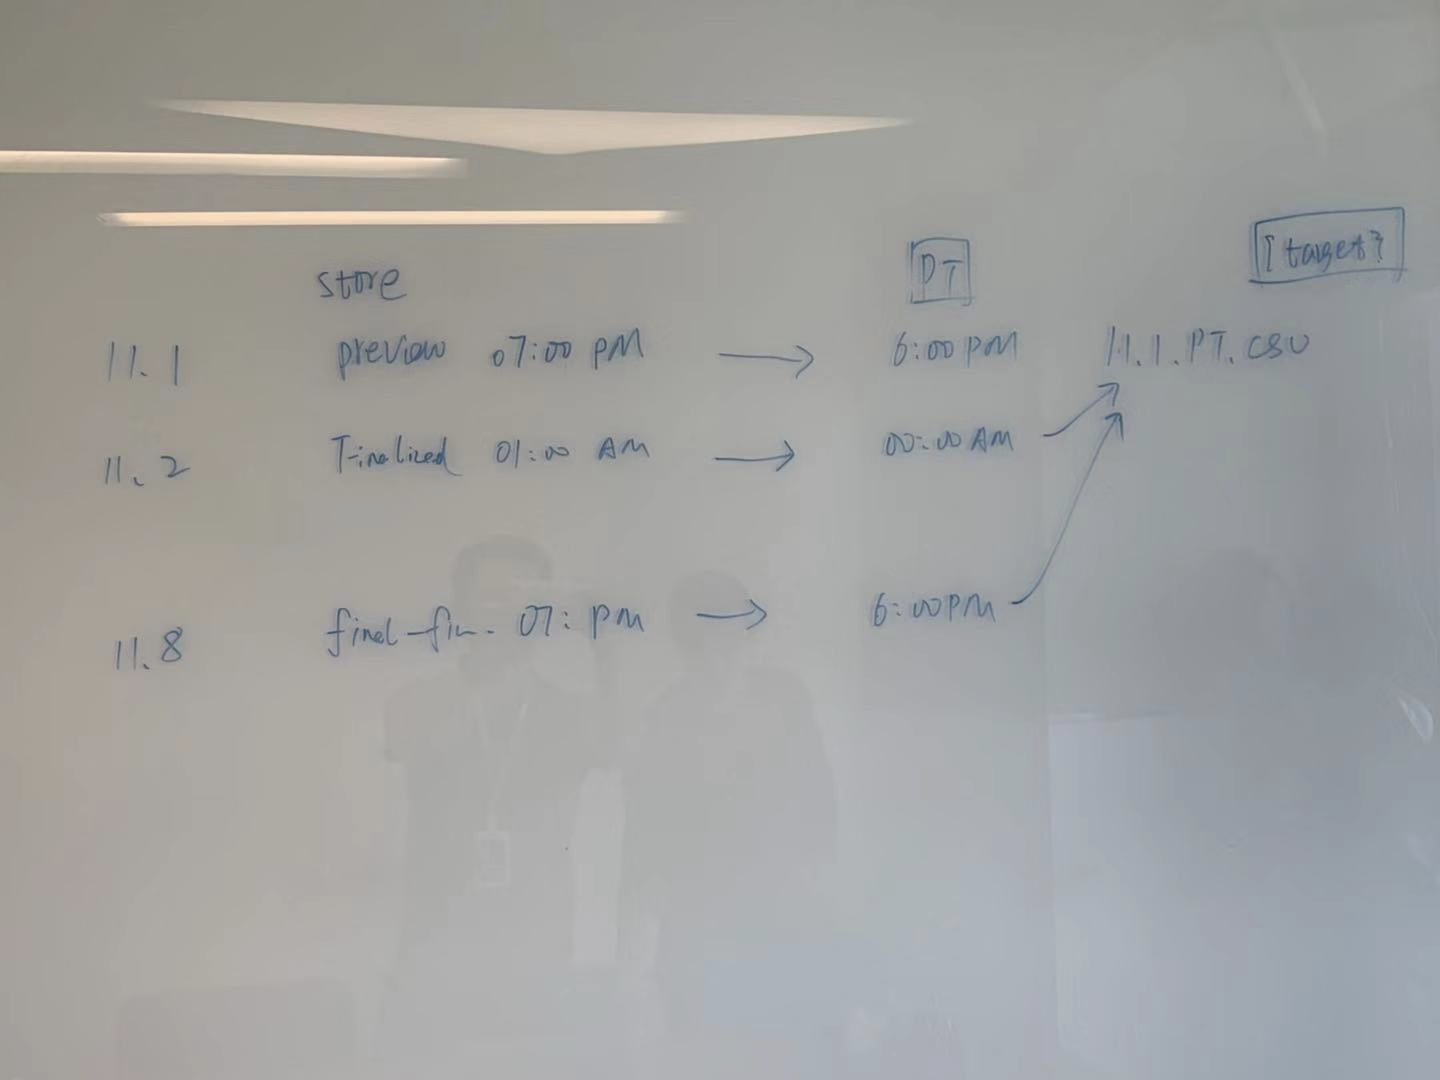 store PT [target]
11.1 preview 07:00 PM → 6:00 PM 11.1.PT.CSV
11.2 Finalized 01:00 AM → 00:00 AM
11.8 final-fin. 07: PM → 6:00PM